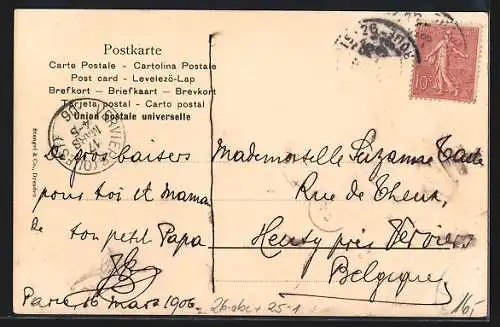 Postkarte
Carte Postale - Cartolina Postale
Post card - Levelező-Lap
Brefkort - Briefkaart - Brevkort
Tarjeta postal - Carto postal
Union postale universelle
10c
Stengel & Co., Dresden
De gros baisers
pour toi et Maman
de ton petit Papa
Paris 16 Mars 1906.
Mademoiselle Suzanne
Rue de Theux
Heusy près Verviers
Belgique
16,-